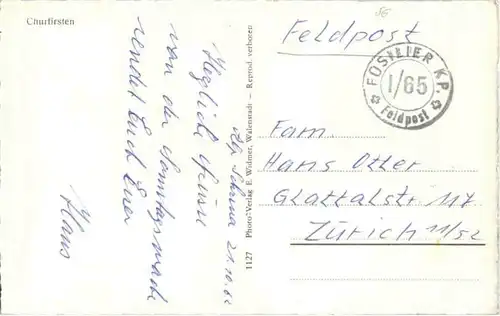 Churfirsten
Alp Schrina 21.10.62
Herzliche Grüsse
von der Sonntagswache
sendet Euch Euer
Hans
1127 Photo-Verlag E. Widmer, Walenstadt — Reprod. verboten
Feldpost
FÜSILIER KP.
I/65
Feldpost
Fam.
Hans Otter
Glattalstr 117
Zürich 11/52